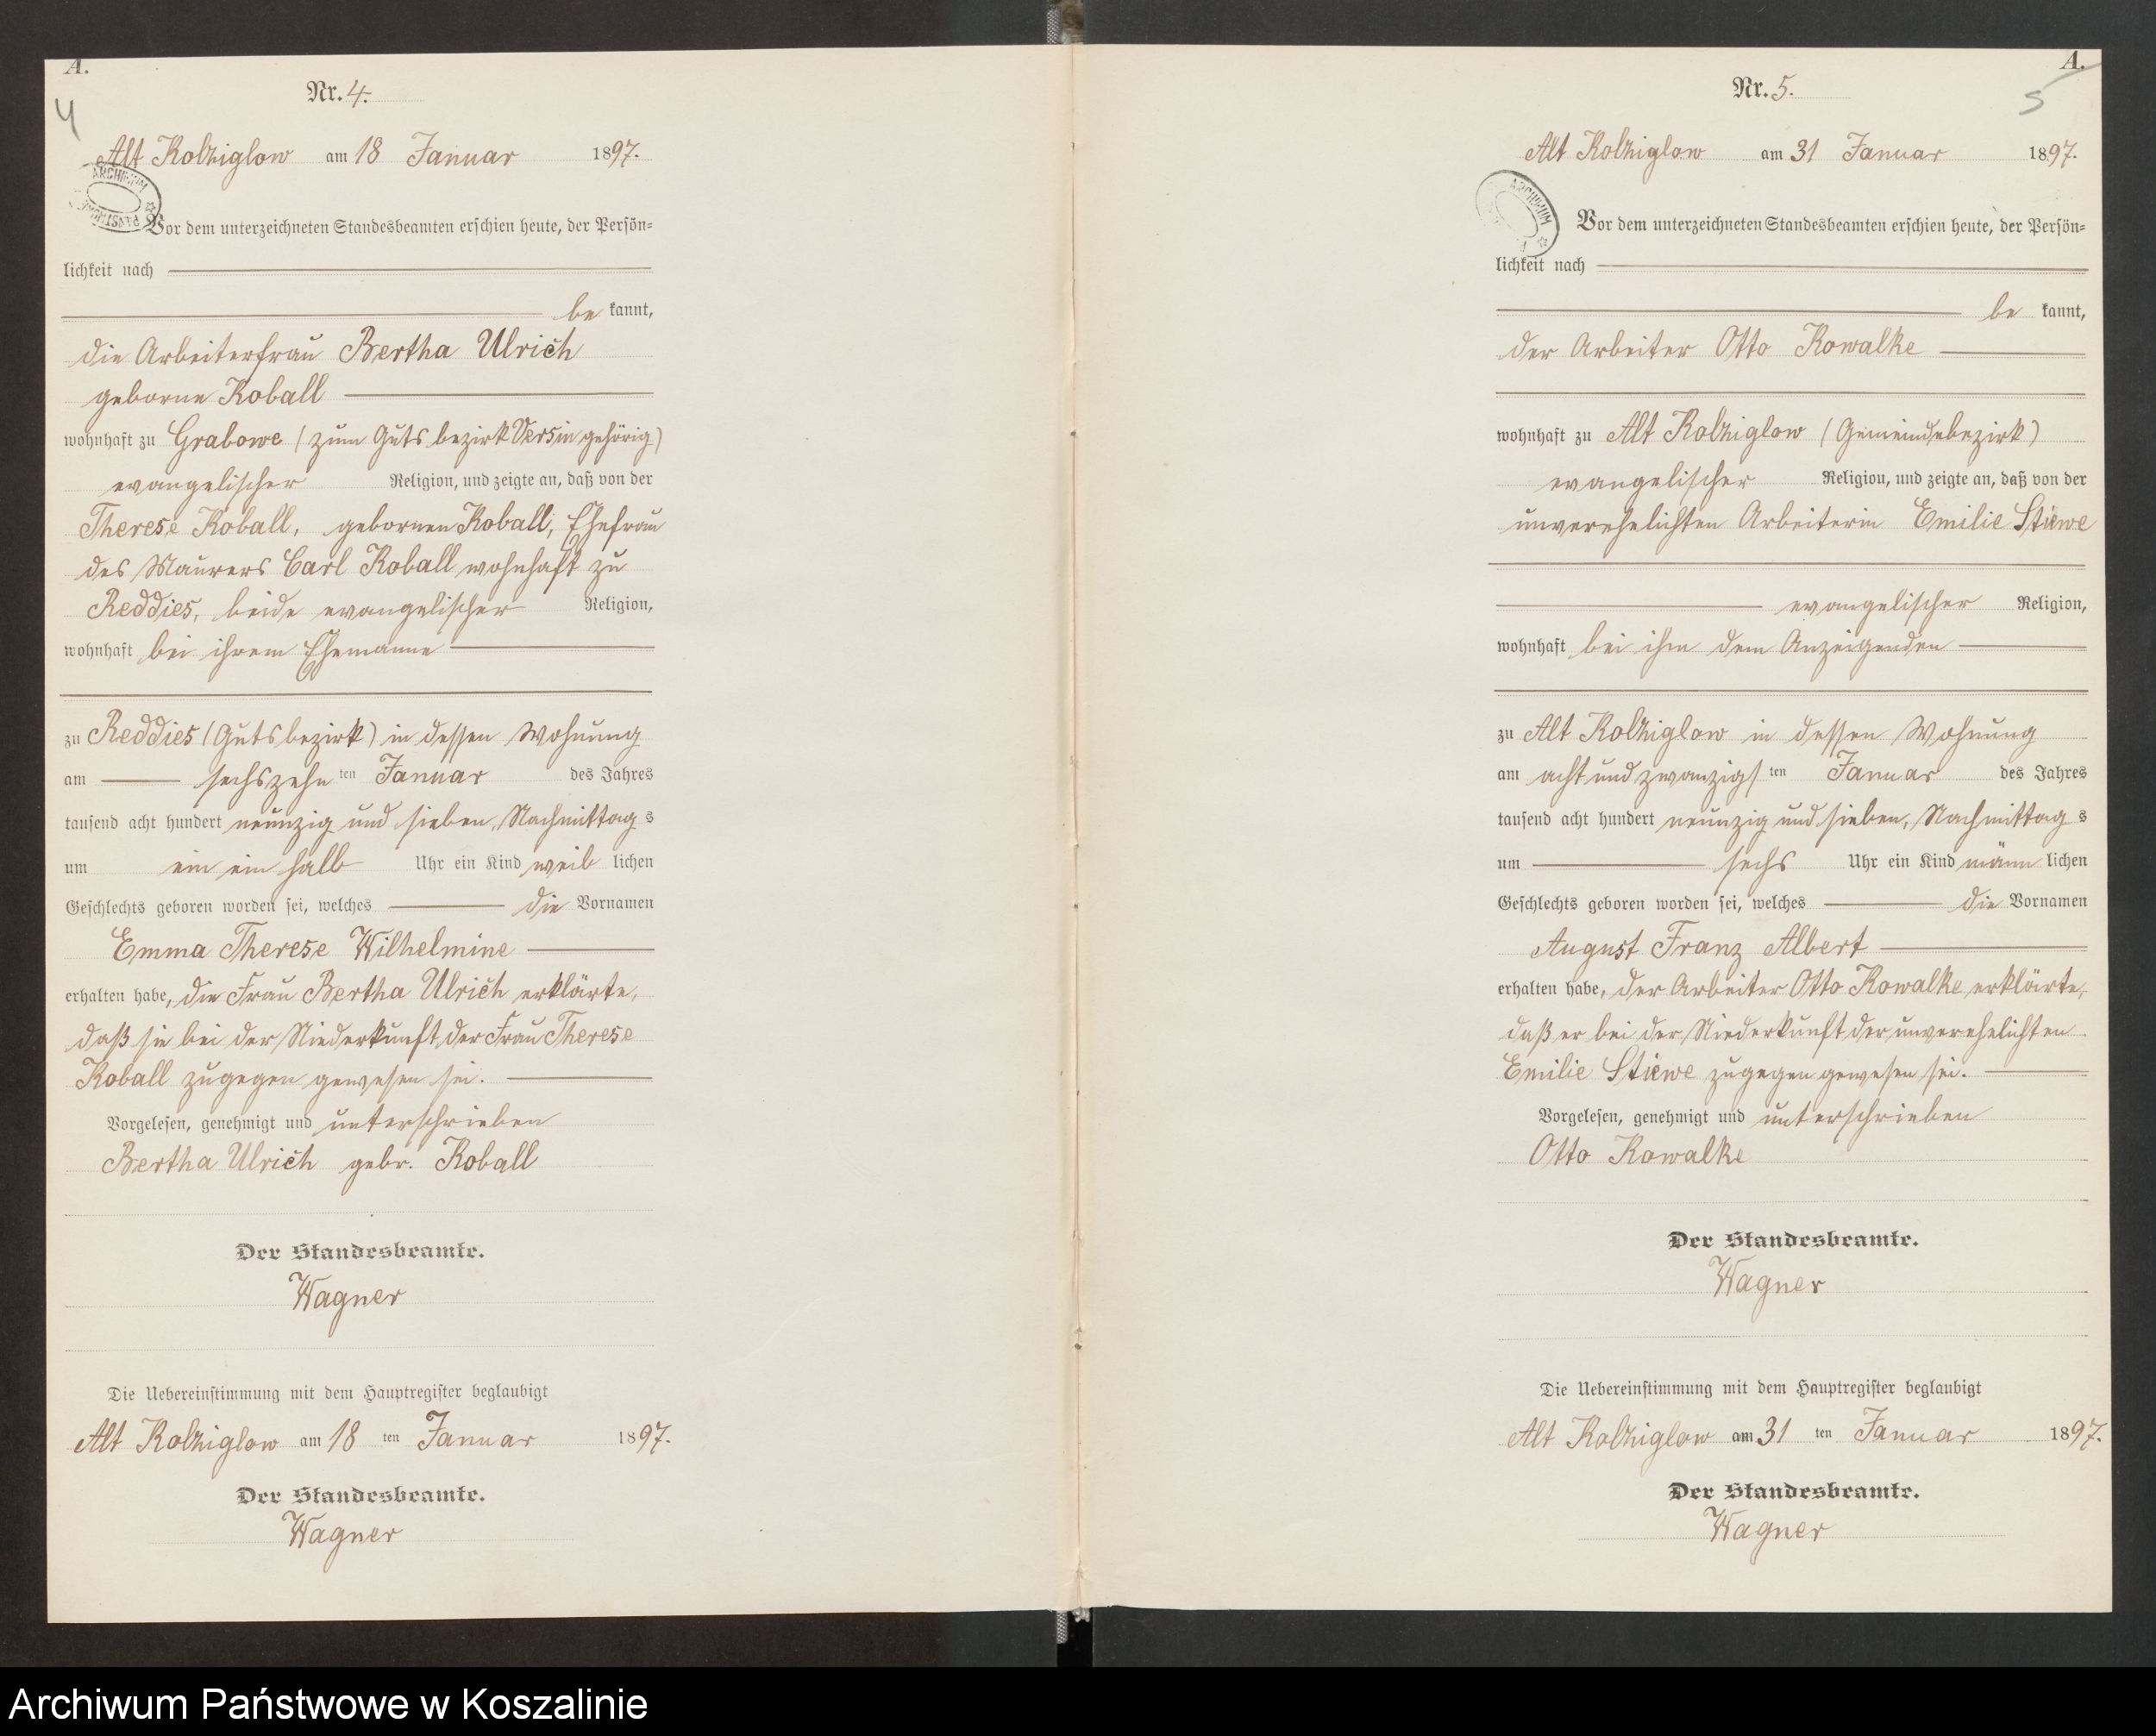 A.
Nr. 4.
4
Alt Kolziglow am 18 Januar 1897.
ARCHIWUM
Vor dem unterzeichneten Standesbeamten erschien heute, der Persön=
lichkeit nach
be kannt,
die Arbeiterfrau Bertha Ulrich
geborne Koball
wohnhaft zu Grabowe (zum Gutsbezirk Versin gehörig)
evangelischer Religion, und zeigte an, daß von der
Therese Koball, gebornen Koball, Ehefrau
des Maurers Carl Koball wohnhaft zu
Reddies, beide evangelischer Religion,
wohnhaft bei ihrem Ehemanne
zu Reddies (Gutsbezirk) in dessen Wohnung
am sechszehn ten Januar des Jahres
tausend acht hundert neunzig und sieben, Nachmittag s
um ein ein halb Uhr ein Kind weib lichen
Geschlechts geboren worden sei, welches die Vornamen
Emma Therese Wilhelmine
erhalten habe, die Frau Bertha Ulrich erklärte,
daß sie bei der Niederkunft der Frau Therese
Koball zugegen gewesen sei.
Vorgelesen, genehmigt und unterschrieben
Bertha Ulrich gebr. Koball
Der Standesbeamte.
Wagner
Die Uebereinstimmung mit dem Hauptregister beglaubigt
Alt Kolziglow am 18 ten Januar 1897.
Der Standesbeamte.
Wagner
A.
Nr. 5.
5
Alt Kolziglow am 31 Januar 1897.
ARCHIWUM
Vor dem unterzeichneten Standesbeamten erschien heute, der Persön=
lichkeit nach
be kannt,
der Arbeiter Otto Kowalke
wohnhaft zu Alt Kolziglow (Gemeindebezirk)
evangelischer Religion, und zeigte an, daß von der
unverehelichten Arbeiterin Emilie Stiewe
evangelischer Religion,
wohnhaft bei ihm dem Anzeigenden
zu Alt Kolziglow in dessen Wohnung
am acht und zwanzigs ten Januar des Jahres
tausend acht hundert neunzig und sieben, Nachmittag s
um sechs Uhr ein Kind männ lichen
Geschlechts geboren worden sei, welches die Vornamen
August Franz Albert
erhalten habe, der Arbeiter Otto Kowalke erklärte,
daß er bei der Niederkunft der unverehelichten
Emilie Stiewe zugegen gewesen sei.
Vorgelesen, genehmigt und unterschrieben
Otto Kowalke
Der Standesbeamte.
Wagner
Die Uebereinstimmung mit dem Hauptregister beglaubigt
Alt Kolziglow am 31 ten Januar 1897.
Der Standesbeamte.
Wagner
Archiwum Państwowe w Koszalinie